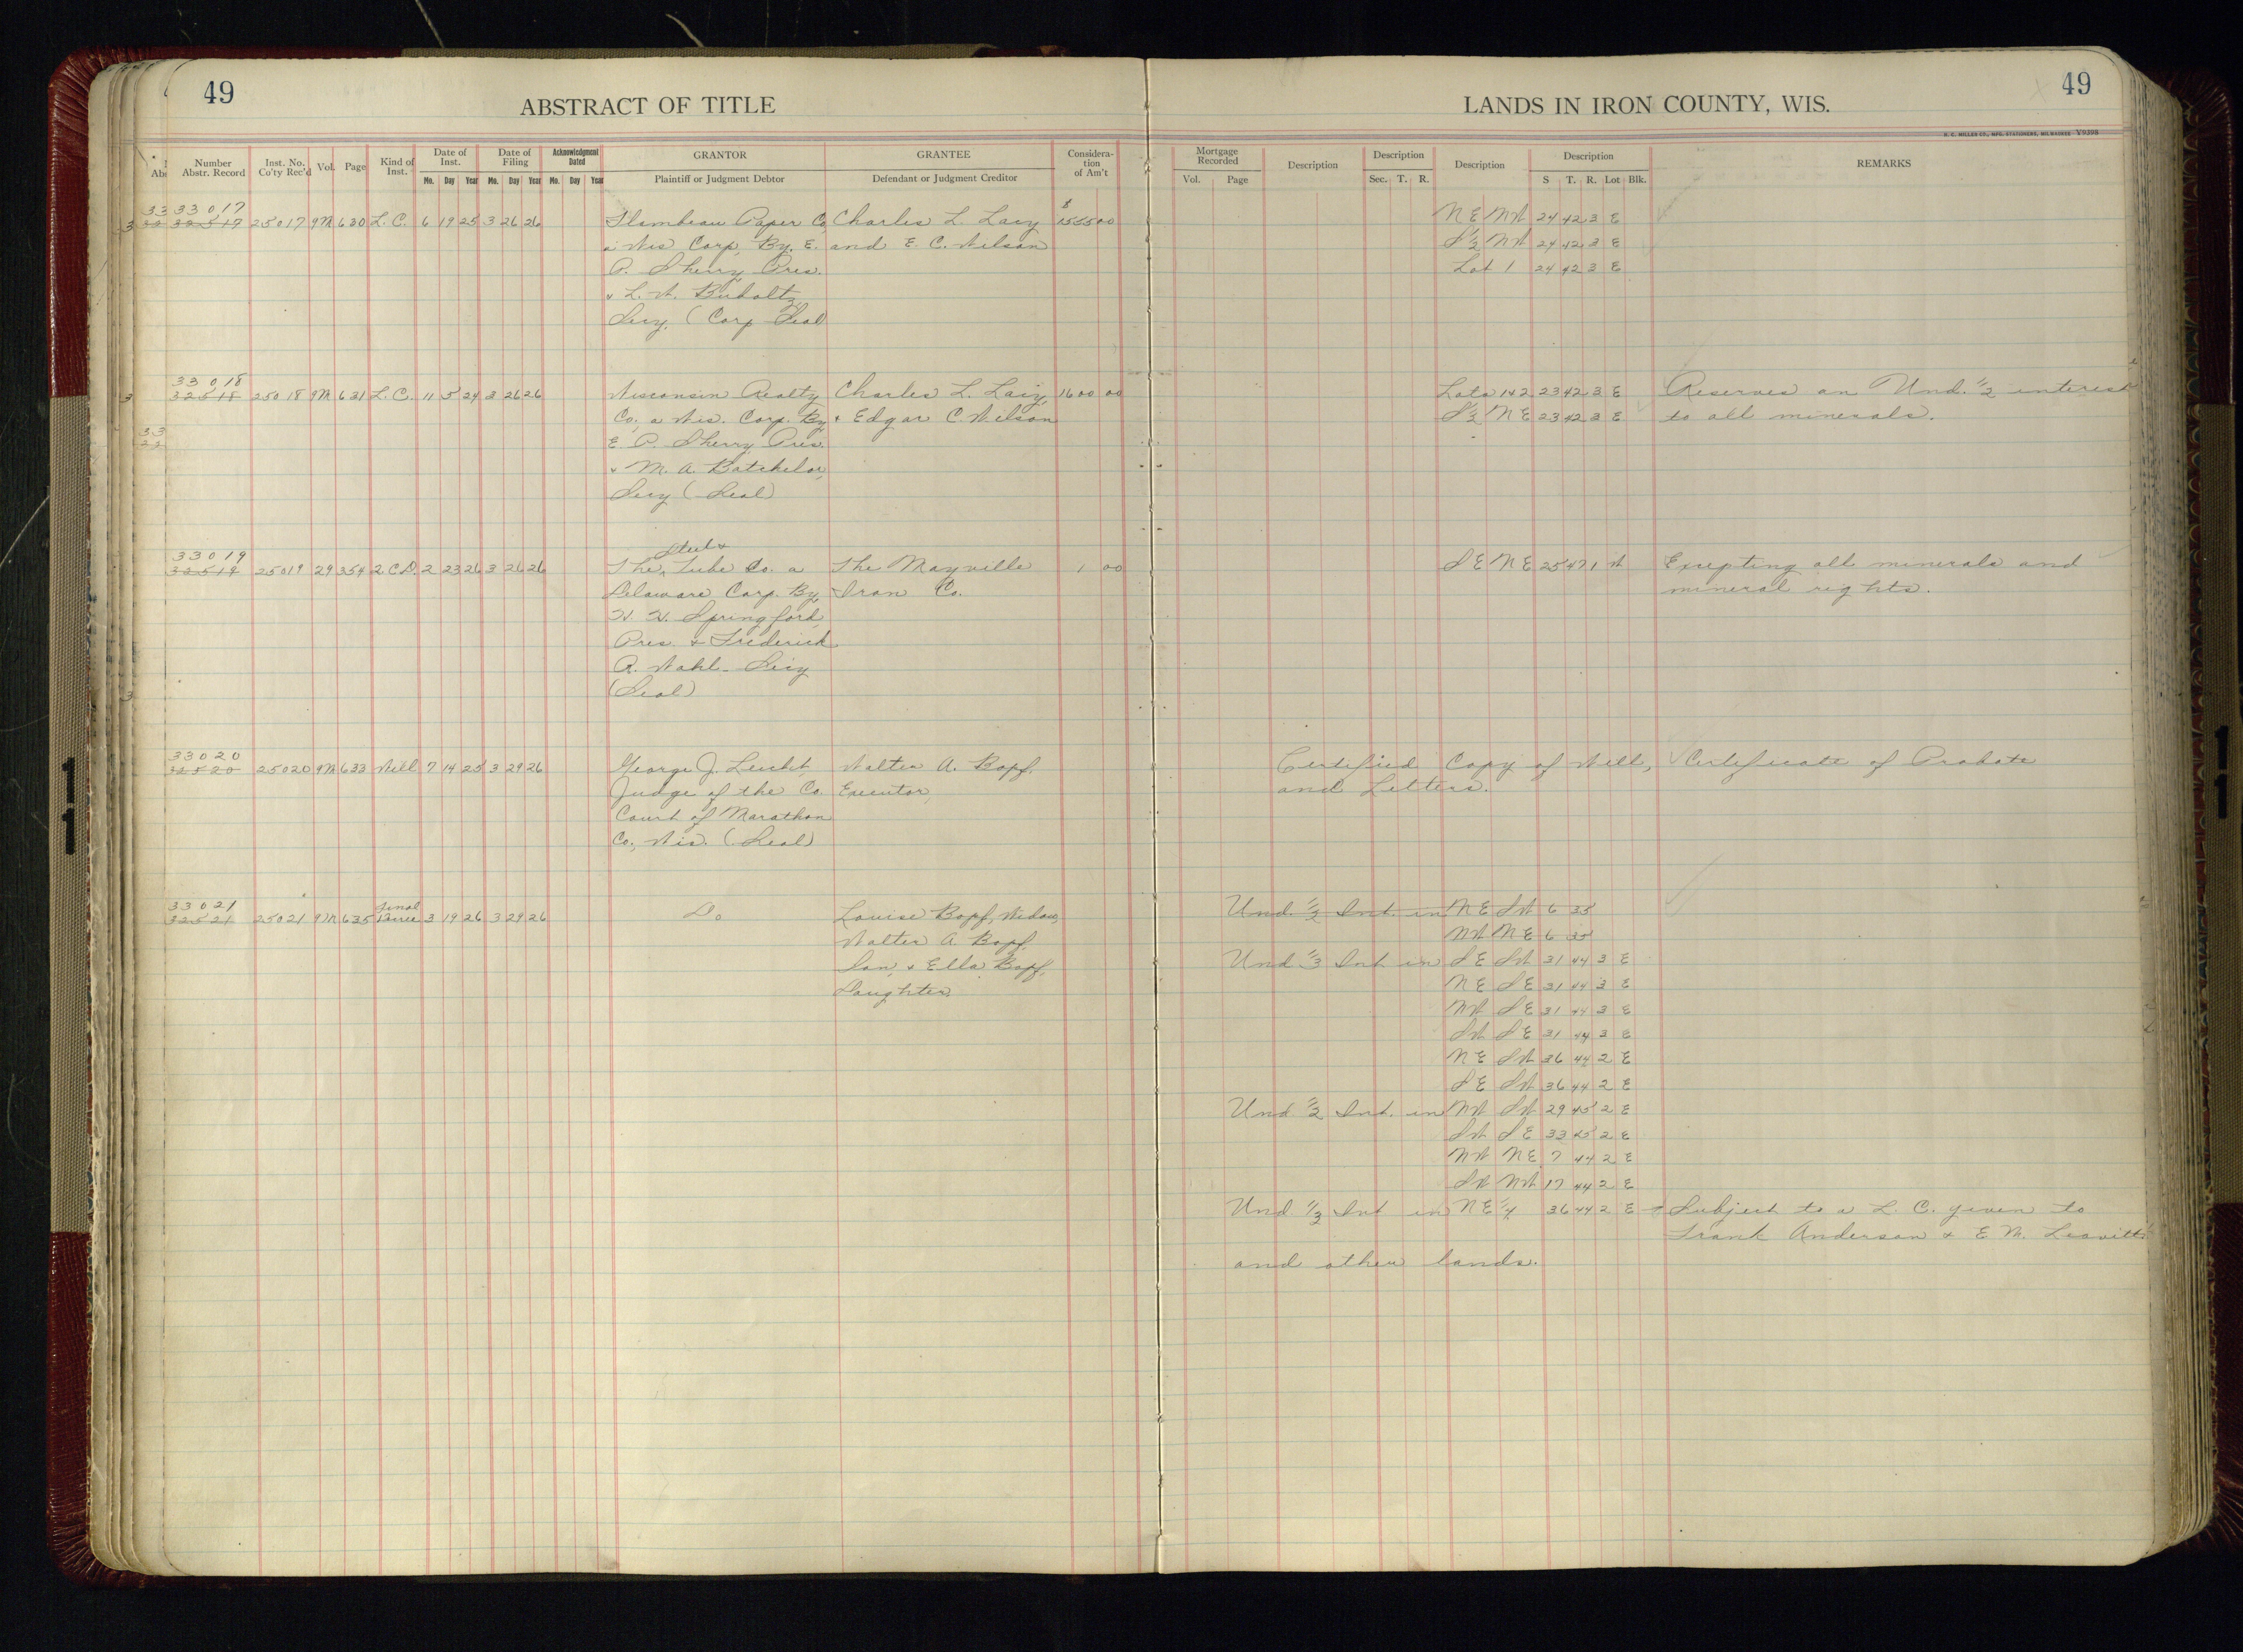 49 49
ABSTRACT OF TITLE LANDS IN IRON COUNTY, WIS.
H. C. MILLER CO., MFG. STATIONERS, MILWAUKEE Y9398
Number Abstr. Record Inst. No. Co'ty Rec'd Vol. Page Kind of Inst. Date of Inst. Date of Filing Acknowledgment Dated GRANTOR GRANTEE Considera- tion of Am't Mortgage Recorded Description Description Description Description REMARKS
Mo. Day Year Mo. Day Year Mo. Day Year Plaintiff or Judgment Debtor Defendant or Judgment Creditor Vol. Page Sec. T. R. S T. R. Lot Blk.
33017
32517 25017 9M 630 L. C. 6 19 25 3 26 26 Flambeau Paper Co. Charles L. Lacy $1555 00 NE NW 24 42 3 E
a Wis Corp, By, E. and E. C. Wilson S½ NW 24 42 3 E
P. Sherry Pres. Lot 1 24 42 3 E
& L. W. Buholtz,
Secy, (Corp Seal
33018
32518 25018 9M 631 L. C. 11 5 24 3 26 26 Wisconsin Realty Charles L. Lacy, 1600 00 Lots 1+2 23 42 3 E Reserves an Und. ½ interest
Co, a Wis. Corp. By, & Edgar C. Wilson S½ NE 23 42 3 E to all minerals.
E. P. Sherry, Pres.
& M. A. Batchelor,
Secy (Seal)
33019 Steel &
32519 25019 29 354 2. C. D. 2 23 26 3 26 26 The Tube Co. a The Mayville 1 00 SE NE 25 47 1 W Excepting all minerals and
Delaware Corp. By, Iron Co. mineral rights.
H. H. Springford,
Pres. & Frederick
A. Wahl - Secy
(Seal)
33020
32520 25020 9M 633 Will 7 14 25 3 29 26 George J. Leicht, Walter A. Bopf, Certified Copy of Will, Certificate of Probate
Judge of the Co. Executor, and Letters.
Court of Marathon
Co., Wis. (Seal)
33021 Final
32521 25021 9M 635 Decree 3 19 26 3 29 26 Do Louise Bopf, Widow, Und. ½ Int. in NE SW 6 35
Walter A. Bopf, NW NE 6 35
Son, & Ella Bopf, Und ⅓ Int in SE SW 31 44 3 E
Daughter. NE SE 31 44 3 E
NW SE 31 44 3 E
SW SE 31 44 3 E
NE SW 36 44 2 E
SE SW 36 44 2 E
Und ½ Int. in NW SW 29 45 2 E
SW SE 33 45 2 E
NW NE 7 44 2 E
SW NW 17 44 2 E
Und ⅓ Int in NE ¼ 36 44 2 E Subject to a L. C. given to
Frank Anderson & E M. Leavitt.
and other lands.